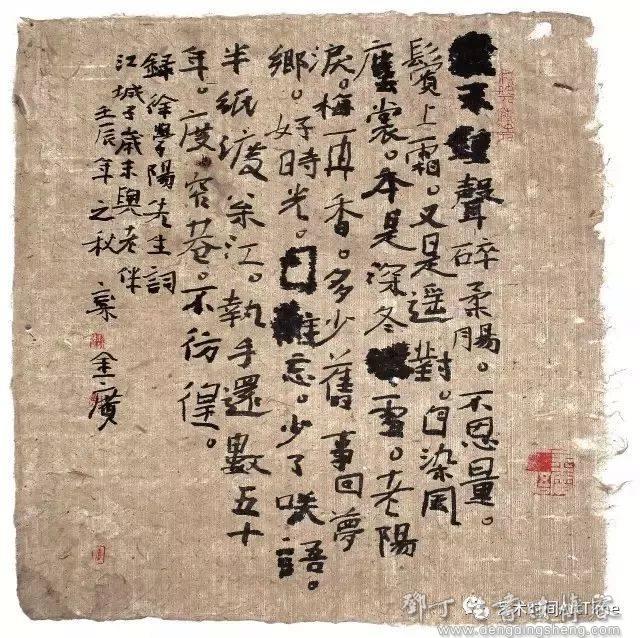 聲碎柔腸。不思量。
鬢上霜。又是遥對。自染風
塵裳。本是深冬雪。老陽
淚。梅再香。多少舊事回夢
鄉。好時光。難忘。少了咲語。
半紙渡江。執手還數五十
年。度窄巷。不彷徨。
錄徐學陽先生詞
江城子歲末與老伴
壬辰年之秋 金廣
艺术时间ArtTime
www.dengdingsheng.com